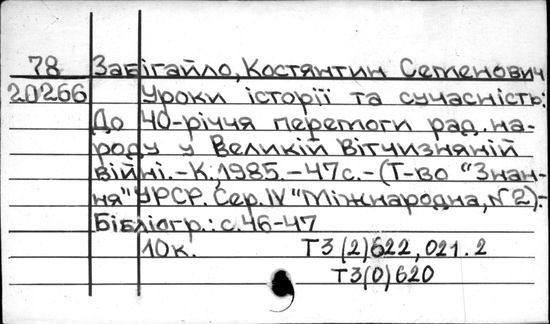 78 Забігайло, Костянтин Семенович
20266 Уроки історії та сучасність:
До 40-річчя перемоги рад. на-
роду у Великій Вітчизняній
війні.-К.,1985.-47с.-(Т-во "Знан-
ня" УРСР. Сер. IV "Міжнародна, №2).-
Бібліогр.: с.46-47
10к. Т3(2)622,021.2
Т3(0)620